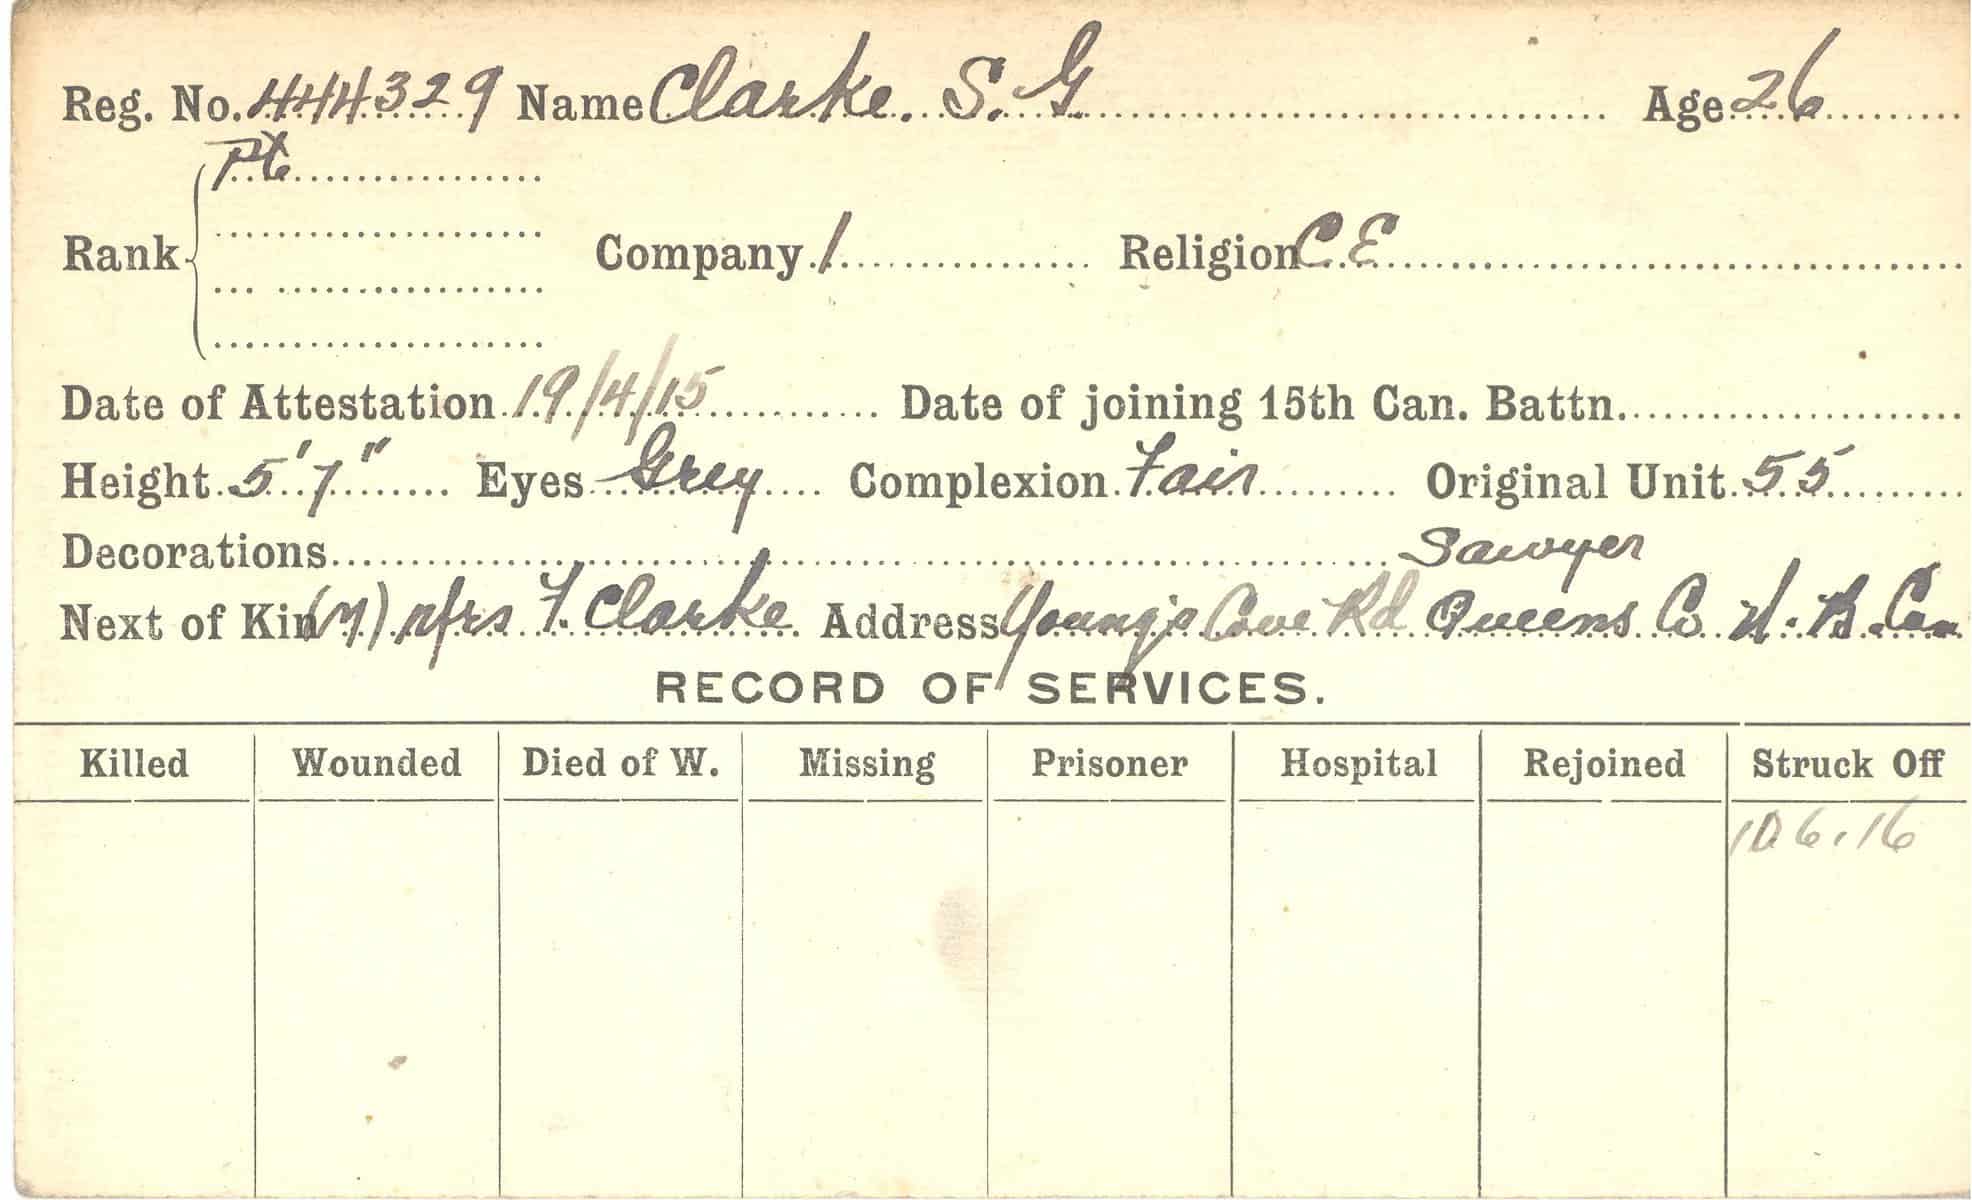 Reg. No. 444329 Name Clarke. S. G. Age 26
Pte
Rank Company 1 Religion C. E
Date of Attestation 19/4/15 Date of joining 15th Can. Battn.
Height 5' 7" Eyes Grey Complexion Fair Original Unit 55
Decorations Sawyer
Next of Kin (M) Mrs F. Clarke Address Young's Cove Rd Queens Co. N. B. Can
RECORD OF SERVICES.
Killed Wounded Died of W. Missing Prisoner Hospital Rejoined Struck Off
10.6.16